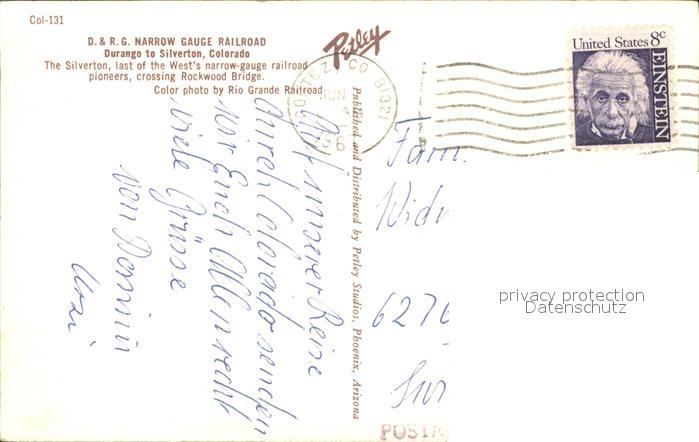 Col-131
D. & R. G. NARROW GAUGE RAILROAD
Durango to Silverton, Colorado
The Silverton, last of the West's narrow-gauge railroad
pioneers, crossing Rockwood Bridge.
Color photo by Rio Grande Railroad
Petley
CO 81321
JUN
United States 8c
EINSTEIN
Published and Distributed by Petley Studios, Phoenix, Arizona
Auf unserer Reise
durch Colorado senden
wir Euch Allen recht
viele Grüsse
von
Fam.
privacy protection
Datenschutz